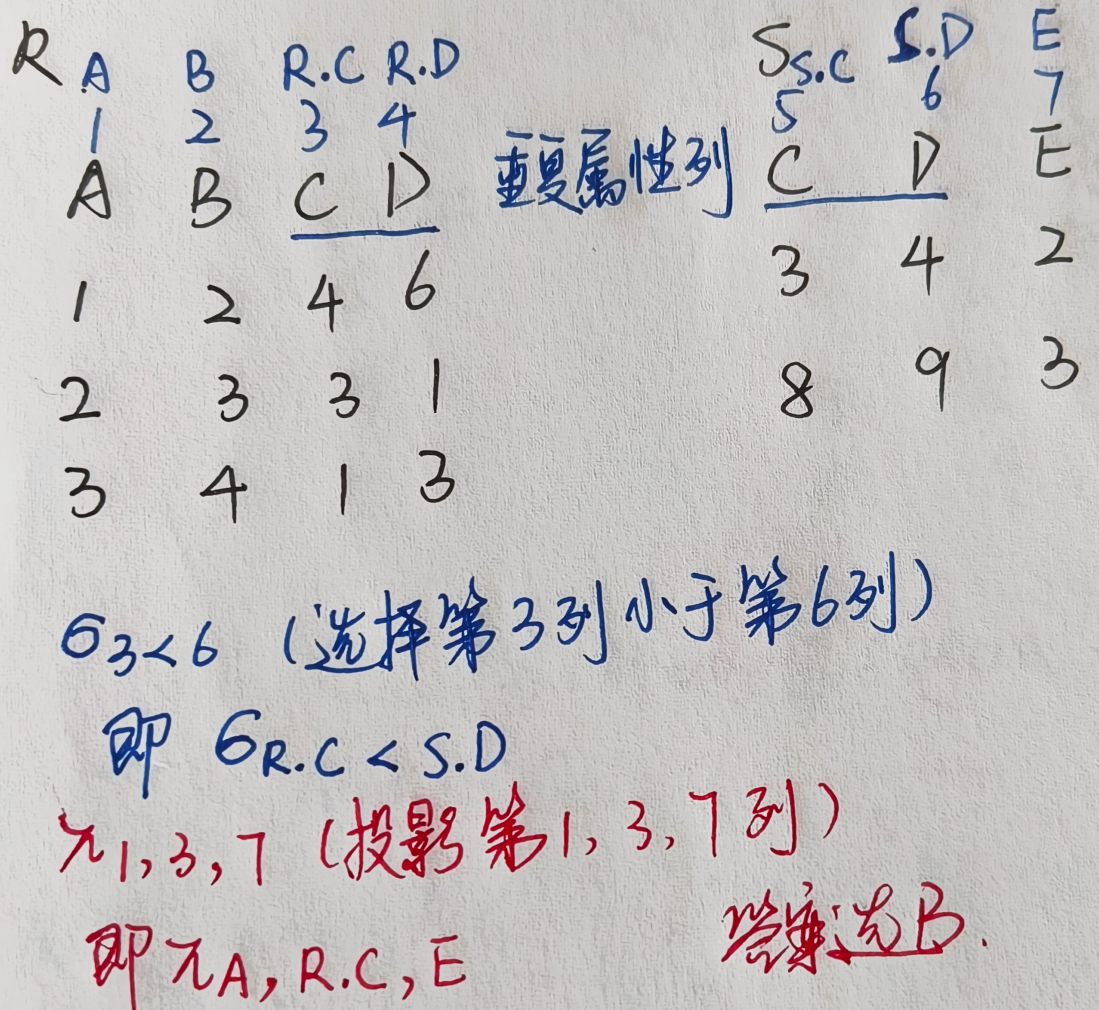 R A B R.C R.D S S.C S.D E
1 2 3 4 5 6 7
A B C D 重复属性列 C D E
1 2 4 6 3 4 2
2 3 3 1 8 9 3
3 4 1 3
σ3<6 (选择第3列小于第6列)
即 σR.C < S.D
π1,3,7 (投影第1,3,7列)
即πA,R.C,E 答案选B.